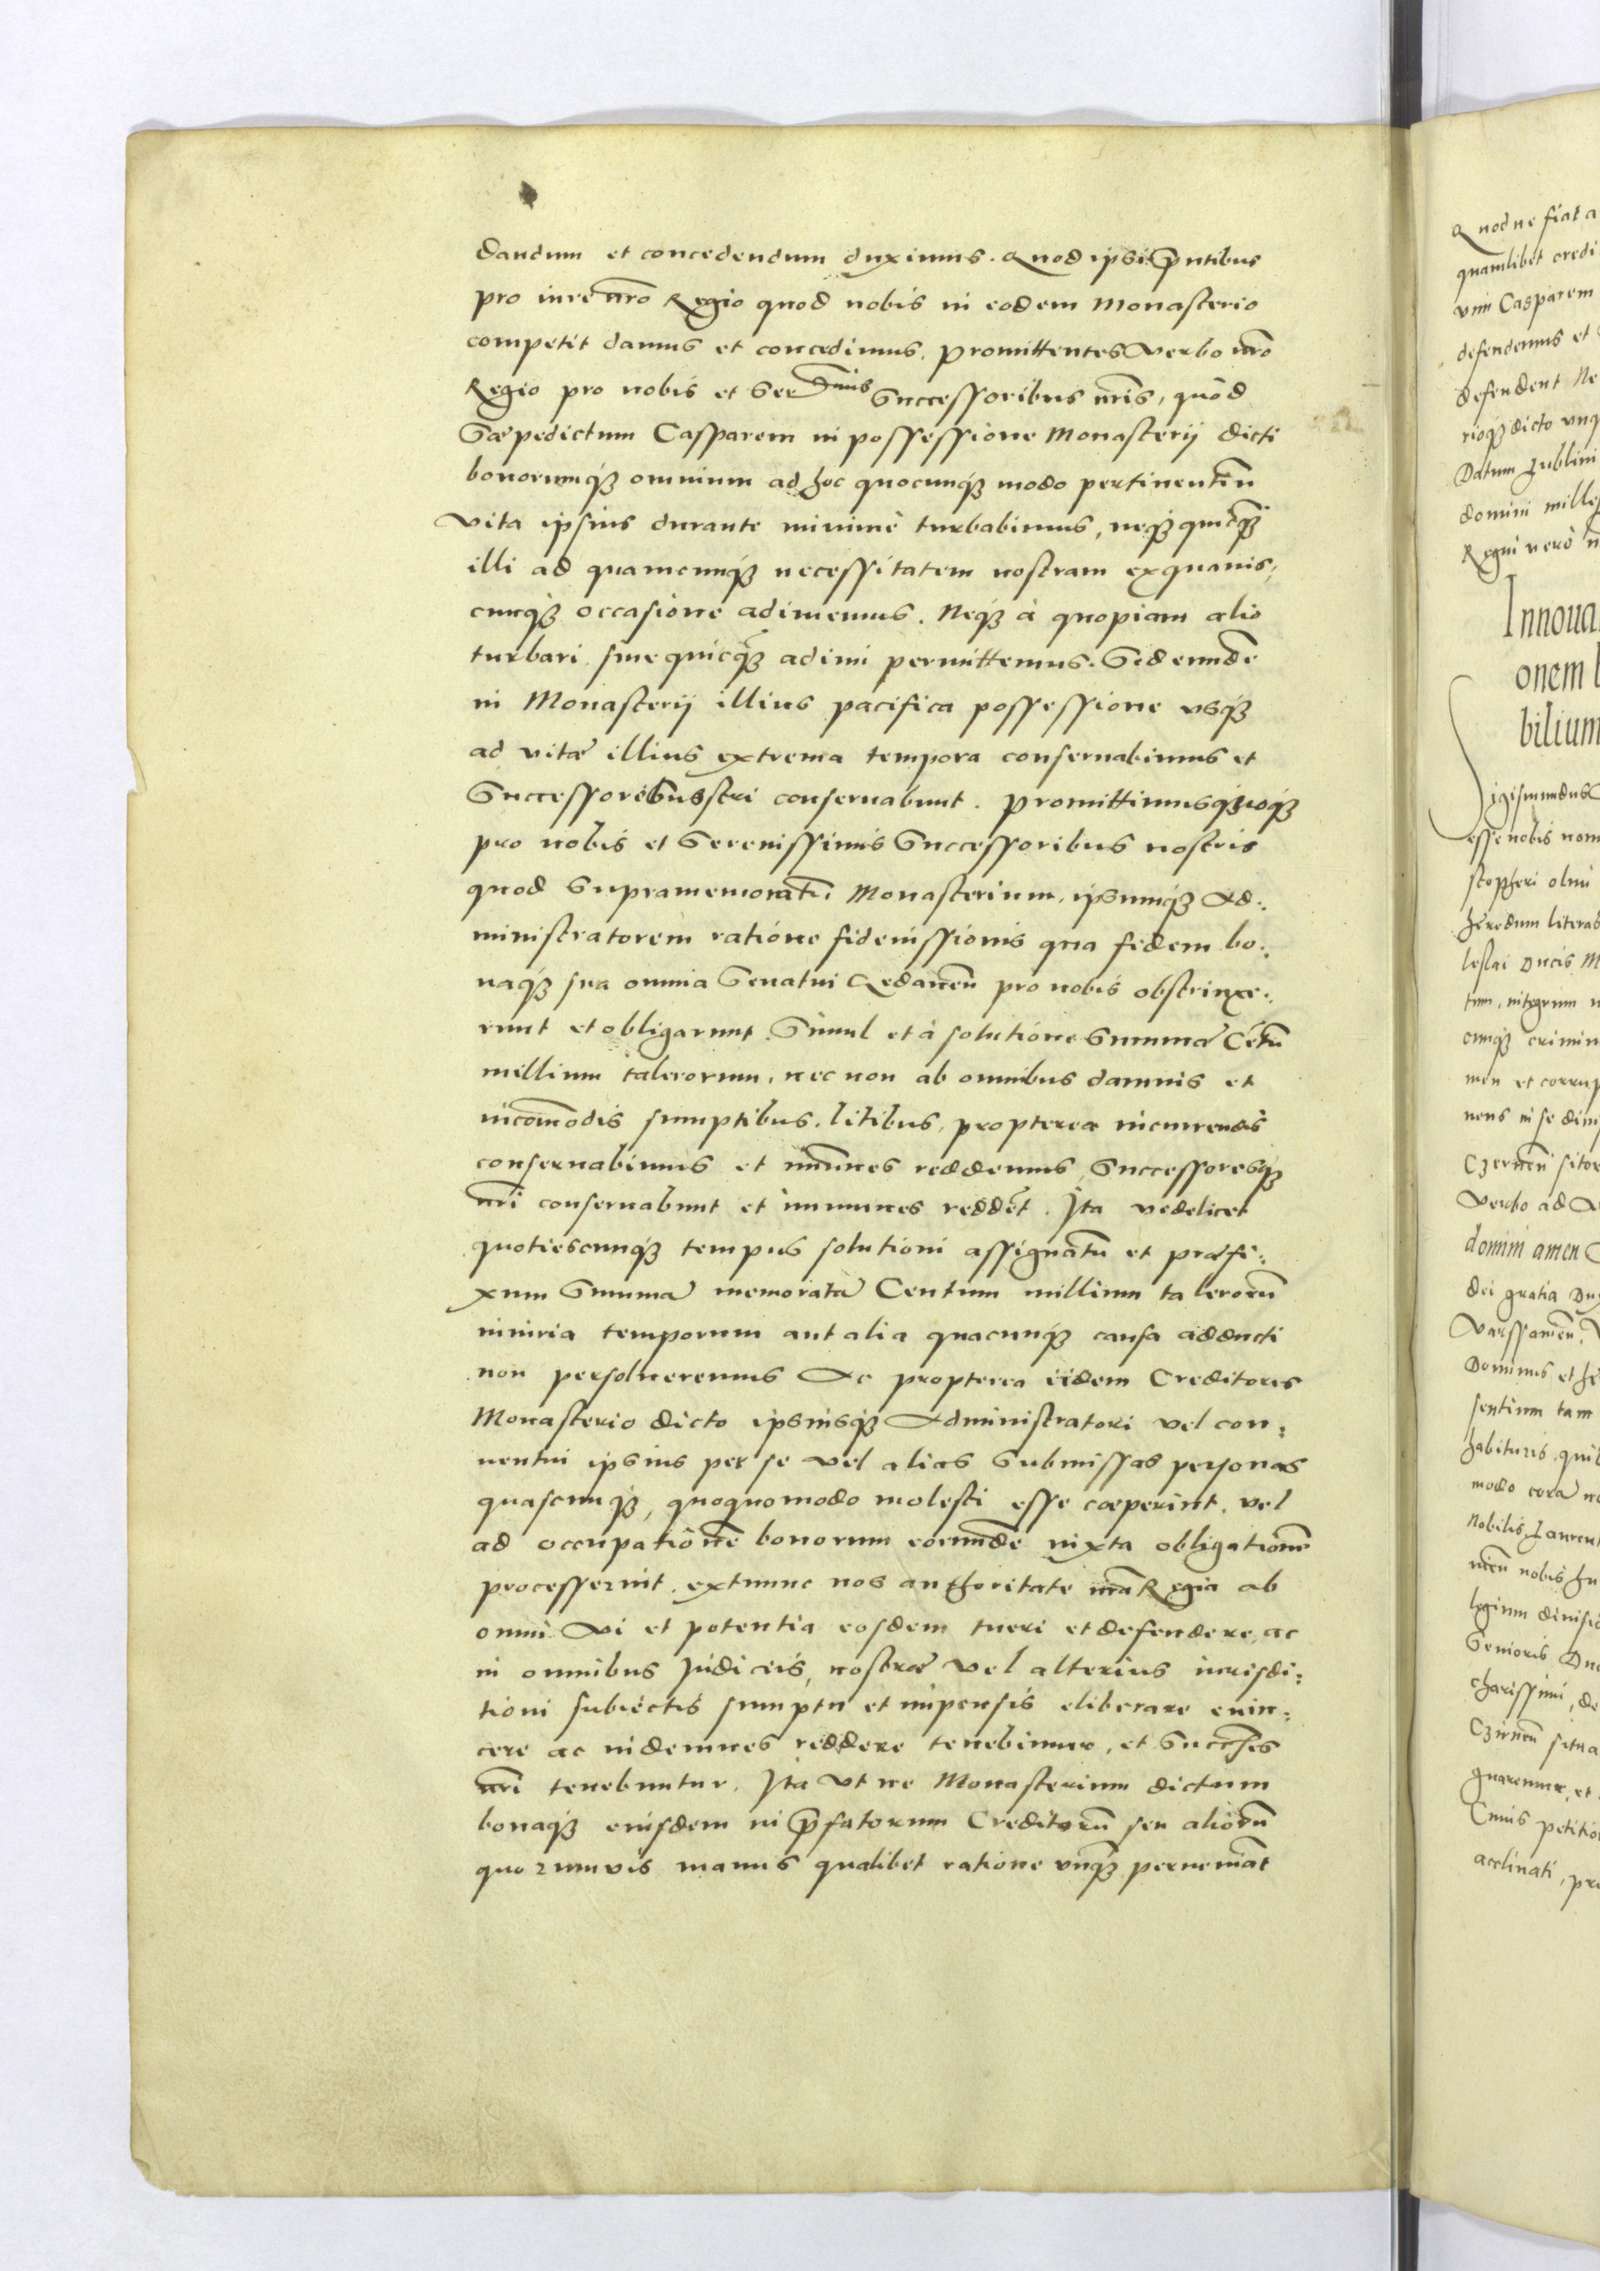 dandum et concedendum duximus. Quod ipsi pñtibus
pro iure nr̃o Regio quod nobis in eodem Monasterio
competit damus et concedimus. Promittentes verbo nr̃o
Regio pro nobis et Ser^mis Successoribus nr̃is, quòd
Sæpedictum Casparem in possessione Monasterij dicti
bonorumq; omnium ad hoc quocunq; modo pertinentiũ
vita ipsius durante minimè turbabimus, neq; quicq̃;
illi ad quamcunq; necessitatem nostram ex quauis,
cunq; occasione adimemus. Neq; à quopiam alio
turbari siue quicq̃; adimi permittemus. Sed eundẽ
in Monasterij illius pacifica possessione vsq;
ad vitæ illius extrema tempora conseruabimus et
Successores nostri conseruabunt. Promittimus quoq;
pro nobis et Serenissimis Successoribus nostris
quod supramemoratũ Monasterium, ipsumq; Ad:
ministratorem ratione fideiussionis qua fidem bo:
naq; sua omnia Senatui Gedaneñ pro nobis obstrinxe:
runt et obligarunt. Simul et à solutione Summæ Cẽtũ
millium talerorum, nec non ab omnibus damnis et
incõmodis sumptibus, litibus, propterea incurrendis
conseruabimus et immunes reddemus, Successoresq;
nr̃i conseruabunt et immunes reddẽt. Ita videlicet
quotiescunq; tempus solutioni assignatũ et præfi:
xum Summæ memoratæ Centum millium talerorũ
iniuria temporum aut alia quacunq; causa adducti
non persolueremus Ac propterea iidem Creditores
Monasterio dicto ipsiusq; Administratori vel con:
uentui ipsius per se vel alias submissas personas
quascunq;, quoquomodo molesti esse cæperint, vel
ad occupationẽ bonorum eorundẽ iuxta obligationẽ
processerint, extunc nos authoritate nr̃a Regia ab
omni vi et potentia eosdem tueri et defendere, ac
in omnibus Iudiciis, nostræ vel alterius iurisdi:
tioni subiectis sumptu et impensis eliberare euin:
cere ac indemnes reddere tenebimur, et Succ̃res
nr̃i tenebuntur. Ita vt ne Monasterium dictum
bonaq; eiusdem in p̃fatorum Creditorũ seu aliorũ
quorumuis manus qualibet ratione vnq̃; perueniãt
Quod ne fiat a
quamlibet credi
vim Casparem
defendemus et
defendent Ne
rioq; dicto vnq
Datum Lublini
domini mille
Regni vero n
Innoua
onem l
bilium
Sigismundus
esse nobis nom
stopheri olim
heredum literas
leslai Ducis M
tum, integrum
cunq; crimin
men et corrup
nens in se dimi
Czerneñ sitor
Verbo ad
domini amen
dei gratia Du
Varssauieñ
Dominus et he
sentium tam
habituris, quib
modo corã no
Nobilis, Laurent
nobis hu
legium diuisio
Senioris Duc
charissimi, de
Czirneñ situa
guaremur, et
Cuius petitio
acclinati, pro